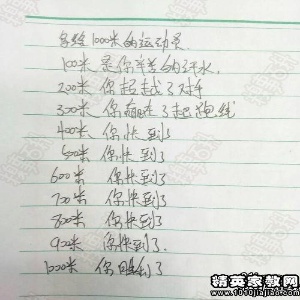 写给1000米的运动员
100米 是你辛苦的汗水,
200米 你超越了对手
300米 你赢在了起跑线
400米 你快到了
500米 你快到了
600米 你快到了
700米 你快到了
800米 你快到了
900米 你快到了.
1000米 你到了
精英家教网
www.1010jiajiao.com